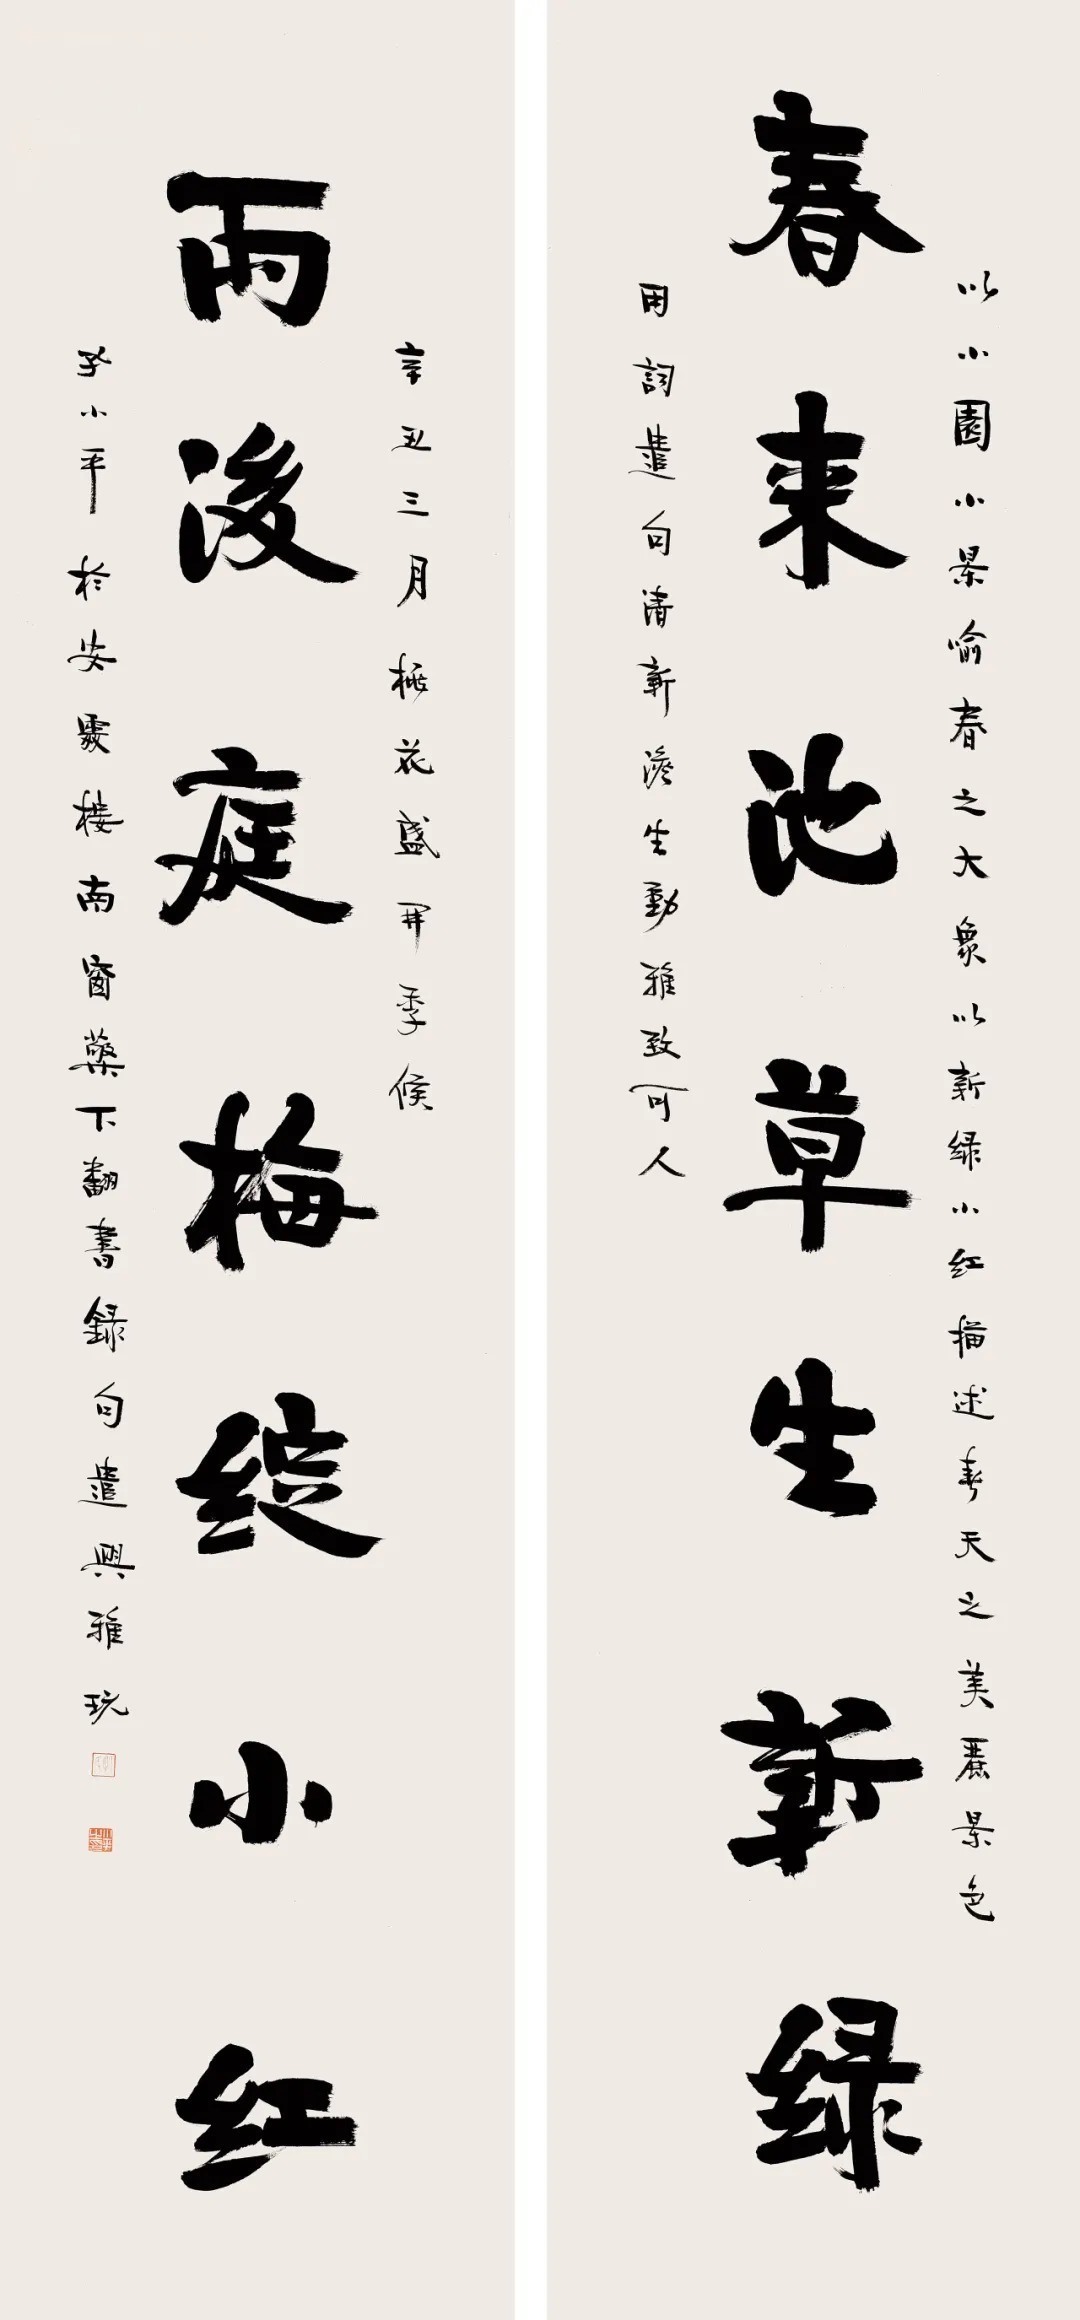 以小園小景喻春之大象以新绿小红描述春天之美麗景色
春来池草生新绿
用詞遣句清新澹生動雅致可人
辛丑三月桃花盛开季候
雨後庭梅绽小红
孙小平於安處楼南窗藥下翻書録句遣興雅玩